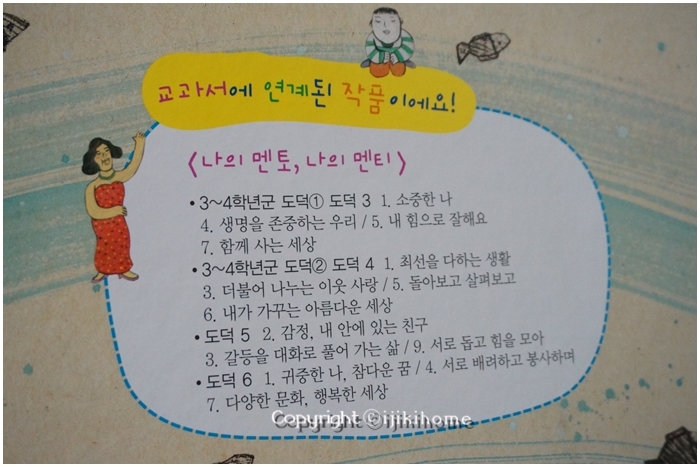 교과서에 연계된 작품이에요!
<나의 멘토, 나의 멘티>
• 3~4학년군 도덕① 도덕 3 1. 소중한 나
4. 생명을 존중하는 우리 / 5. 내 힘으로 잘해요
7. 함께 사는 세상
• 3~4학년군 도덕② 도덕 4 1. 최선을 다하는 생활
3. 더불어 나누는 이웃 사랑 / 5. 돌아보고 살펴보고
6. 내가 가꾸는 아름다운 세상
• 도덕 5 2. 감정, 내 안에 있는 친구
3. 갈등을 대화로 풀어 가는 삶 / 9. 서로 돕고 힘을 모아
• 도덕 6 1. 귀중한 나, 참다운 꿈 / 4. 서로 배려하고 봉사하며
7. 다양한 문화, 행복한 세상
Copyright ⓒijikihome